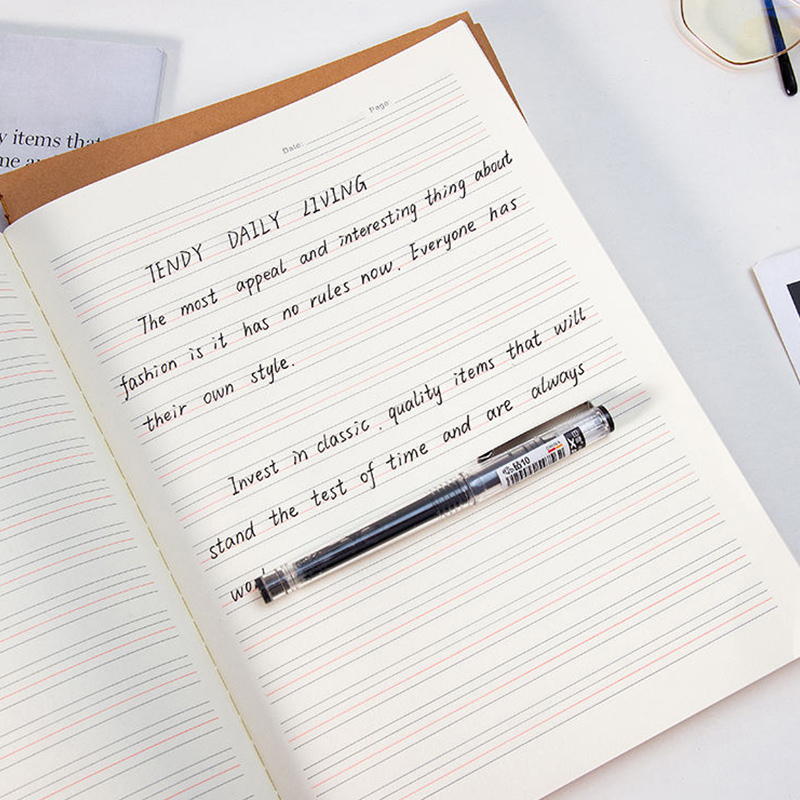 y items that
me
Date: Page:
TENDY DAILY LIVING
The most appeal and interesting thing about
fashion is it has no rules now. Everyone has
their own style.
Invest in classic. quality items that will
stand the test of time and are always